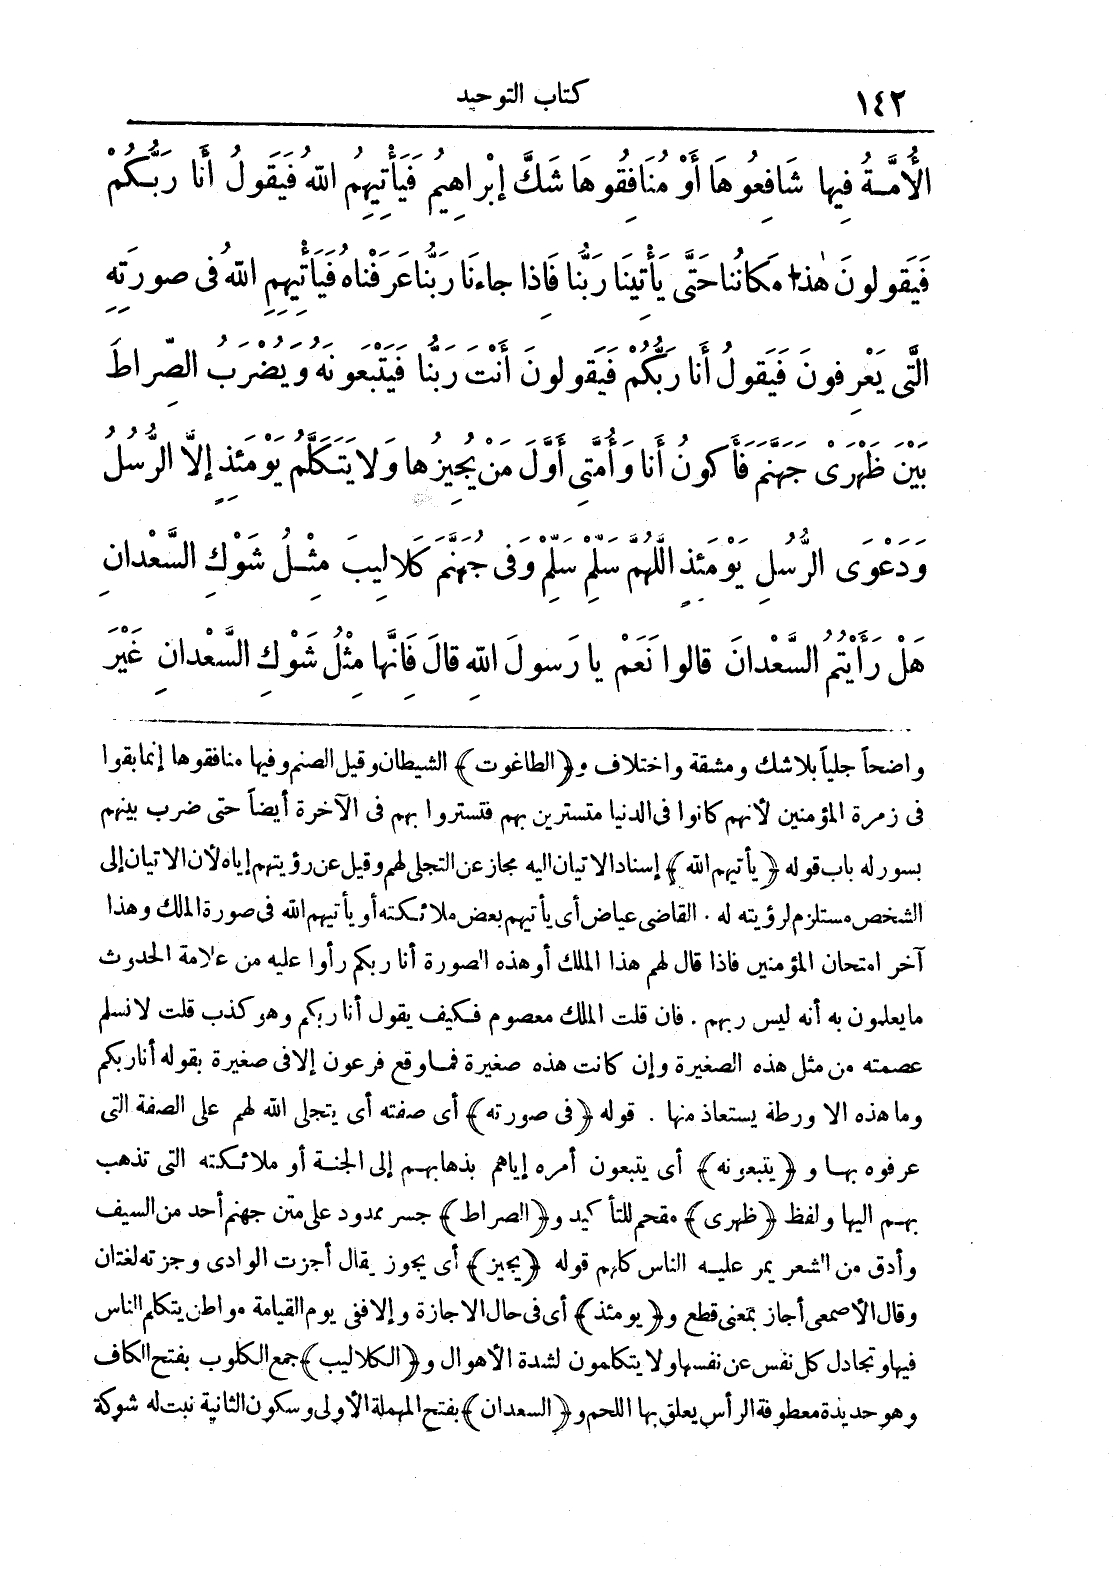 ١٤٢ كتاب التوحيد
الْأُمَّةُ فِيها شَافِعُوهَا أَوْ مُنَافِقُوهَا شَكَّ إبْراهِيمُ فَيَأْتِيهِمُ اللهُ فَيَقُولُ أَنا رَبُّكُمْ
فَيَقُولونَ هٰذا مَكَانُنا حَتَّى يَأْتِينَا رَبُّنا فَاذا جاءنَا رَبُّنا عَرَفْناهُ فَيَأْتِيهِمِ اللهُ فى صورَتِهِ
الَّتى يَعْرِفونَ فَيَقولُ أَنا رَبُّكُمْ فَيَقولونَ أَنْتَ رَبُّنا فَيَتْبَعونَهُ وَيُضْرَبُ الصِّراطُ
بَيْنَ ظَهْرَىْ جَهَنَّمَ فَأَكونُ أَنا وَأُمَّتى أَوَّلَ مَنْ يُجِيزُها وَلا يَتَكَلَّمُ يَوْمَئِذٍ إلاَّ الرُّسُلُ
وَدَعْوَى الرُّسُلِ يَوْمَئِذٍ اللَّهُمَّ سَلِّمْ سَلِّمْ وَفى جَهَنَّمَ كَلالِيبَ مِثْلُ شَوْكِ السَّعْدانِ
هَلْ رَأَيْتُمُ السَّعْدانَ قالوا نَعَمْ يا رَسولَ اللهِ قالَ فَانَّها مِثْلُ شَوْكِ السَّعْدانِ غَيْرَ
واضحاً جلياً بلا شك ومشقة واختلاف و﴿الطاغوت﴾ الشيطان وقيل الصنم وفيها منافقوها إنما بقوا
فى زمرة المؤمنين لأنهم كانوا فى الدنيا متسترين بهم فتستروا بهم فى الآخرة أيضاً حتى ضرب بينهم
بسور له باب قوله ﴿يأتيهم الله﴾ إسناد الاتيان اليه مجاز عن التجلى لهم وقيل عن رؤيتهم إياه لأن الاتيان إلى
الشخص مستلزم لرؤيته له . القاضى عياض أى يأتيهم بعض ملائكته أو يأتيهم الله فى صورة الملك وهذا
آخر امتحان المؤمنين فاذا قال لهم هذا الملك أو هذه الصورة أنا ربكم رأوا عليه من علامة الحدوث
ما يعلمون به أنه ليس ربهم . فان قلت الملك معصوم فكيف يقول أنا ربكم وهو كذب قلت لا نسلم
عصمته من مثل هذه الصغيرة وإن كانت هذه صغيرة فما وقع فرعون إلا فى صغيرة بقوله أنا ربكم
وما هذه الا ورطة يستعاذ منها . قوله ﴿فى صورته﴾ أى صفته أى يتجلى الله لهم على الصفة التى
عرفوه بها و ﴿يتبعونه﴾ أى يتبعون أمره إياهم بذهابهم إلى الجنة أو ملائكته التى تذهب
بهم اليها ولفظ ﴿ظهرى﴾ مقحم للتأكيد و﴿الصراط﴾ جسر ممدود على متن جهنم أحد من السيف
وأدق من الشعر يمر عليه الناس كلهم قوله ﴿يجيز﴾ أى يجوز يقال أجزت الوادى وجزته لغتان
وقال الأصمعى أجاز بمعنى قطع و﴿يومئذ﴾ أى فى حال الاجازة وإلا ففى يوم القيامة مواطن يتكلم الناس
فيها وتجادل كل نفس عن نفسها ولا يتكلمون لشدة الأهوال و﴿الكلاليب﴾ جمع الكلوب بفتح الكاف
وهو حديدة معطوفة الرأس يعلق بها اللحم و﴿السعدان﴾ بفتح المهملة الأولى وسكون الثانية نبت له شوكة